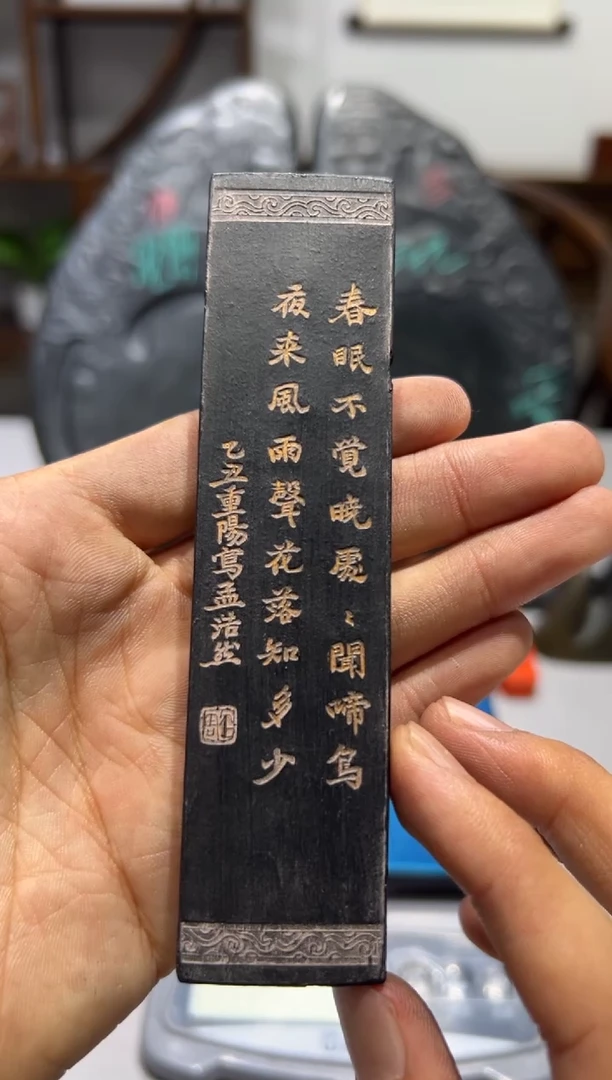 春眠不覺曉處〻聞啼鳥
夜来風雨聲花落知多少
乙丑重陽寫孟浩然